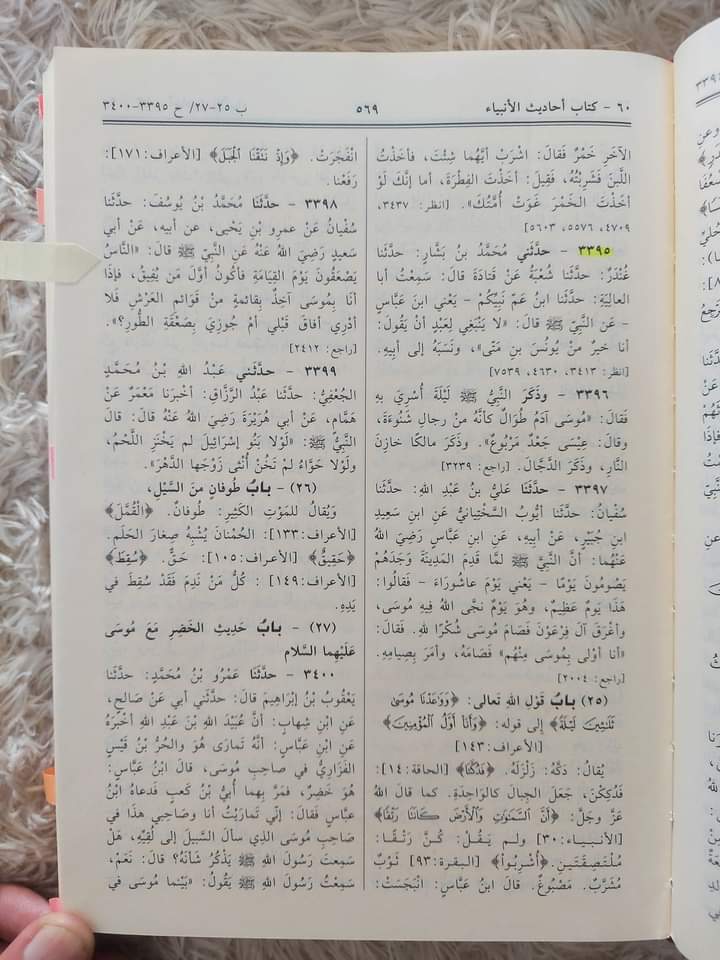 ٦٠ - كتاب أحاديث الأنبياء
٥٦٩
ب ٢٥-٢٧/ ح ٣٣٩٥-٣٤٠٠
الآخَرِ خَمْرٌ فَقَالَ: اشْرَبْ أيَّهُما شِئْتَ، فأخَذْتُ
اللَّبنَ فَشَرِبْتُهُ، فَقِيلَ: أخَذْتَ الفِطْرَةَ، أما إنَّكَ لَوْ
أخَذْتَ الخَمْرَ غَوَتْ أُمَّتُكَ». [انظر: ٣٤٣٧،
٤٧٠٩، ٥٥٧٦، ٥٦٠٣]
٣٣٩٥ - حدَّثَني مُحَمَّدُ بنُ بَشَّارٍ: حدَّثَنا
غُنْدَرٌ: حدَّثَنا شُعْبَةُ عَنْ قَتادَةَ قالَ: سَمِعْتُ أبا
العالِيَةِ: حدَّثَنا ابنُ عَمِّ نَبِيِّكُمْ - يَعْني ابنَ عَبَّاسٍ
- عَنِ النَّبيِّ ﷺ قالَ: «لا يَنْبَغِي لِعَبْدٍ أنْ يَقُولَ:
أنا خيرٌ مِنْ يُونُسَ بنِ مَتَّى»، ونَسَبَهُ إلى أبِيهِ.
[انظر: ٣٤١٣، ٤٦٣٠، ٧٥٣٩]
٣٣٩٦ - وذَكَرَ النَّبيُّ ﷺ لَيْلَةَ أُسْرِيَ بهِ
فَقالَ: «مُوسَى آدَمُ طُوَالٌ كأنَّهُ مِنْ رِجالِ شَنُوءَةَ،
وقالَ: عِيْسَى جَعْدٌ مَرْبُوعٌ». وذَكَرَ مالكًا خازِنَ
النَّارِ، وذَكَرَ الدَّجَّالَ. [راجع: ٣٢٣٩]
٣٣٩٧ - حدَّثَنَا عَليُّ بنُ عَبْدِ اللهِ: حدَّثَنَا
سُفْيانُ: حدَّثَنا أيُّوبُ السَّخْتِيَانيُّ عَنِ ابنِ سَعِيدِ
ابْنِ جُبَيْرٍ، عَنْ أبِيهِ، عَنِ ابنِ عَبَّاسٍ رَضِيَ اللهُ
عَنْهُما: أنَّ النَّبيَّ ﷺ لمَّا قَدِمَ المَدِيْنَةَ وَجَدَهُمْ
يَصُومُونَ يَوْمًا - يَعْني يَوْمَ عاشُورَاءَ - فَقالُوا:
هَذَا يَومٌ عَظِيمٌ، وهوَ يَوْمٌ نَجَّى اللهُ فِيهِ مُوسَى،
وأغْرَقَ آلَ فِرْعَوْنَ فَصَامَ مُوسَى شُكْرًا للهِ. فَقالَ:
«أنا أوْلى بِمُوسَى مِنْهُم» فَصَامَهُ، وأمَرَ بِصِيامِهِ.
[راجع: ٢٠٠٤]
(٢٥) بابُ قَوْلِ اللهِ تَعالى: ﴿وَوَٰعَدْنَا مُوسَىٰ
ثَلَٰثِينَ لَيْلَةً﴾ إلى قوله: ﴿وَأَنَا۠ أَوَّلُ ٱلْمُؤْمِنِينَ﴾
[الأعراف:١٤٣]
يُقالُ: دَكَّهُ: زَلْزَلَهُ. ﴿فَدُكَّتَا﴾ [الحاقة:١٤]:
فَدُكِكْنَ، جَعَلَ الجِبالَ كالوَاحِدَةِ. كما قالَ اللهُ
عَزَّ وجَلَّ: ﴿أَنَّ ٱلسَّمَٰوَٰتِ وَٱلْأَرْضَ كَانَتَا رَتْقًا﴾
[الأنبياء:٣٠] ولم يَقُلْ: كُنَّ رَتْقًا:
مُلْتَصِقَتَينِ. ﴿أُشْرِبُوا﴾ [البقرة:٩٣] ثَوْبٌ
مُشَرَّبٌ. مَصْبُوغٌ. قالَ ابنُ عَبَّاسٍ: انْبَجَسَتْ:
انْفَجَرَتْ. ﴿وَإِذْ نَتَقْنَا ٱلْجَبَلَ﴾ [الأعراف:١٧١]:
رَفَعْنا.
٣٣٩٨ - حدَّثَنَا مُحَمَّدُ بْنُ يُوسُفَ: حدَّثَنا
سُفْيانُ عَنْ عمرِو بنِ يَحْيى، عن أبيه، عَنْ أبي
سَعِيدٍ رَضِيَ اللهُ عَنْهُ عَنِ النَّبيِّ ﷺ قالَ: «النَّاسُ
يَصْعَقُونَ يَوْمَ القِيَامَةِ فأكُونُ أوَّلَ مَنْ يُفِيقُ، فإذَا
أنَا بِمُوسَى آخِذٌ بِقائمةٍ مِنْ قَوَائمِ العَرْشِ فَلا
أدْرِي أفاقَ قَبْلي أمْ جُوزِيَ بِصَعْقَةِ الطُّورِ؟».
[راجع: ٢٤١٢]
٣٣٩٩ - حدَّثَني عَبْدُ اللهِ بْنُ مُحَمَّدٍ
الجُعْفِيُّ: حدَّثَنا عَبْدُ الرَّزَّاقِ: أخْبرَنا مَعْمَرٌ عَنْ
هَمَّامٍ، عَنْ أبي هُرَيْرَةَ رَضِيَ اللهُ عَنْهُ قالَ: قالَ
النَّبيُّ ﷺ: «لَوْلا بَنُو إسْرَائِيلَ لم يَخْتَزِ اللَّحْمُ،
ولَوْلا حَوَّاءُ لم تَخُنْ أُنْثَى زَوْجَها الدَّهْرَ».
(٢٦) - بابُ طُوفانٍ مِنَ السَّيْلِ،
ويُقالُ لِلْمَوْتِ الكَثِيرِ: طُوفانٌ. ﴿الْقُمَّلَ﴾
[الأعراف:١٣٣]: الحُمْنانُ يُشْبِهُ صِغارَ الحَلَمِ.
﴿حَقِيقٌ﴾ [الأعراف:١٠٥]: حَقٌّ. ﴿سُقِطَ﴾
[الأعراف:١٤٩] : كُلُّ مَنْ نَدِمَ فَقَدْ سُقِطَ في
يَدِهِ.
(٢٧) - بابُ حَدِيثِ الخَضِرِ مَعَ مُوسَى
عَلَيْهِما السَّلام
٣٤٠٠ - حدَّثَنَا عَمْرُو بْنُ مُحَمَّدٍ: حدَّثَنا
يَعْقُوبُ بْنُ إبْرَاهِيمَ قالَ: حدَّثَني أبي عَنْ صَالحٍ،
عَنِ ابْنِ شِهابٍ: أنَّ عُبَيْدَ اللهِ بْنَ عَبْدِ اللهِ أخْبَرَهُ
عَنِ ابْنِ عَبَّاسٍ: أنَّهُ تَمَارَى هُوَ والحُرُّ بْنُ قَيْسٍ
الفَزَارِيُّ في صَاحِبِ مُوسَى، قالَ ابْنُ عَبَّاسٍ:
هُوَ خَضِرٌ، فَمَرَّ بِهِما أُبيُّ بْنُ كَعْبٍ فَدعاهُ ابْنُ
عبَّاسٍ فَقالَ: إنِّي تَمارَيْتُ أنا وصَاحِبِي هذَا في
صَاحِبِ مُوسَى الذِي سألَ السَّبيلَ إلى لُقِيِّهِ، هَلْ
سَمِعتَ رَسُولَ اللهِ ﷺ يَذْكُرُ شَأنَهُ؟ قالَ: نَعَمْ،
سَمِعْتُ رَسُولَ اللهِ ﷺ يَقُولُ: «بَيْنَما مُوسَى في